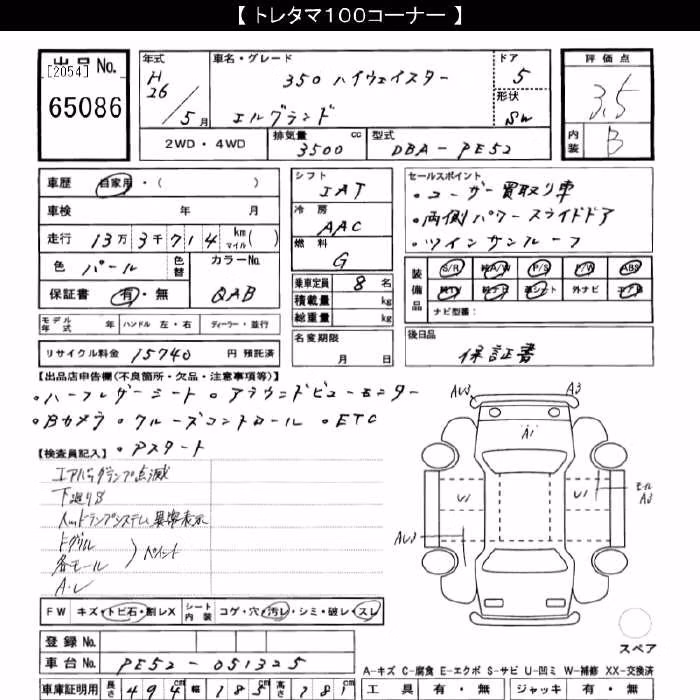 【 トレタマ100コーナー 】
出品No.
[2054]
65086
年式
H
26
5月
車名・グレード
350 ハイウェイスター
エルグランド
ドア
5
形状
SW
評価点
3.5
内装
B
2WD・4WD
排気量
3500 cc
型式
DBA-PE52
車歴
自家用・( )
車検
年 月
走行
13万3千714 km マイル( )
色
パール
色替
カラーNo.
QAB
保証書
有・無
シフト
IAT
冷房
AAC
燃料
G
乗車定員
8 名
積載量
kg
総重量
kg
セールスポイント
・ユーザー買取り車
・両側パワースライドドア
・ツインサンルーフ
装備品
S/R
純A/W
P/S
P/W
ABS
純TV
純ナビ
革シート
外ナビ
エアB
ナビ型番:
モデル年式
年
ハンドル 左・右
ディーラー・並行
リサイクル料金
15740
円 預託済
名変期限
月 日
後日品
保証書
【出品店申告欄(不良箇所・欠品・注意事項等)】
・ハーフレザーシート ・アラウンドビューモニター
・Bカメラ ・クルーズコントロール ・ETC
・Pスタート
【検査員記入】
エアバッグランプ点滅
下廻りS
システム異常表示
ドグリル
各モール
ペイント
A・U
FW
キズ・トビ石・割レX
シート内装
コゲ・穴・汚レ・シミ・破レ・スレ
登録No.
車台No.
PE52-051325
車庫証明用
長さ
494 cm
幅
185 cm
高さ
181 cm
AU3
A3
A1
U1
U1
モール
A3
AU3
スペア
A-キズ C-腐食 E-エクボ S-サビ U-凹ミ W-補修 XX-交換済
工具
有・無
ジャッキ
有・無